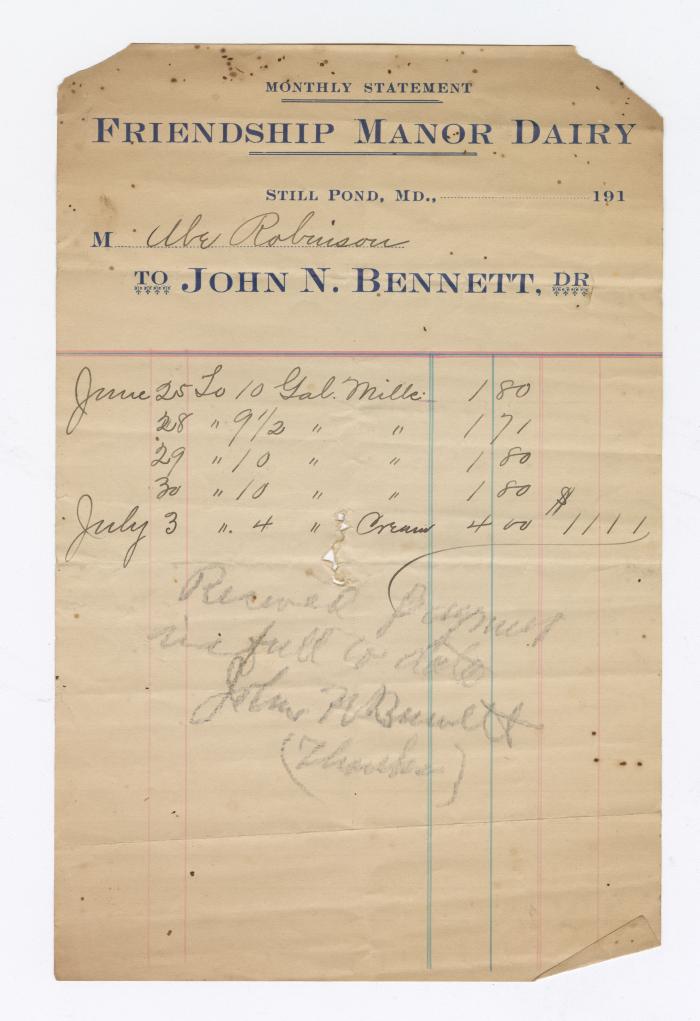 MONTHLY STATEMENT
FRIENDSHIP MANOR DAIRY
STILL POND, MD., 191
M Abe Robinson
TO JOHN N. BENNETT, DR
June 25 To 10 Gal. Milk 1 80
28 " 9 1/2 " " 1 71
29 " 10 " " 1 80
30 " 10 " " 1 80
July 3 " 4 " Cream 4 00 $ 11 11
Received payment
in full to date
John N Bennett
(Thanks)